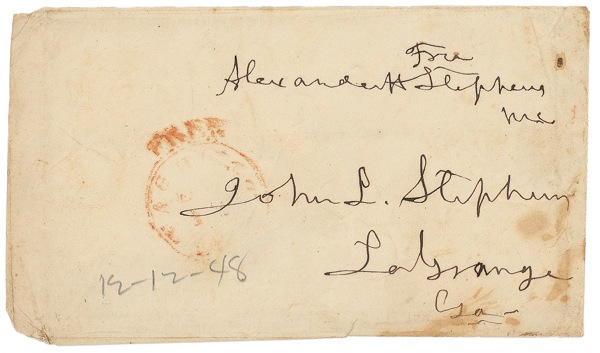 Free
Alexander H Stephens
M.C.
FREE
John L. Stephens
LaGrange
Ga
12-12-48